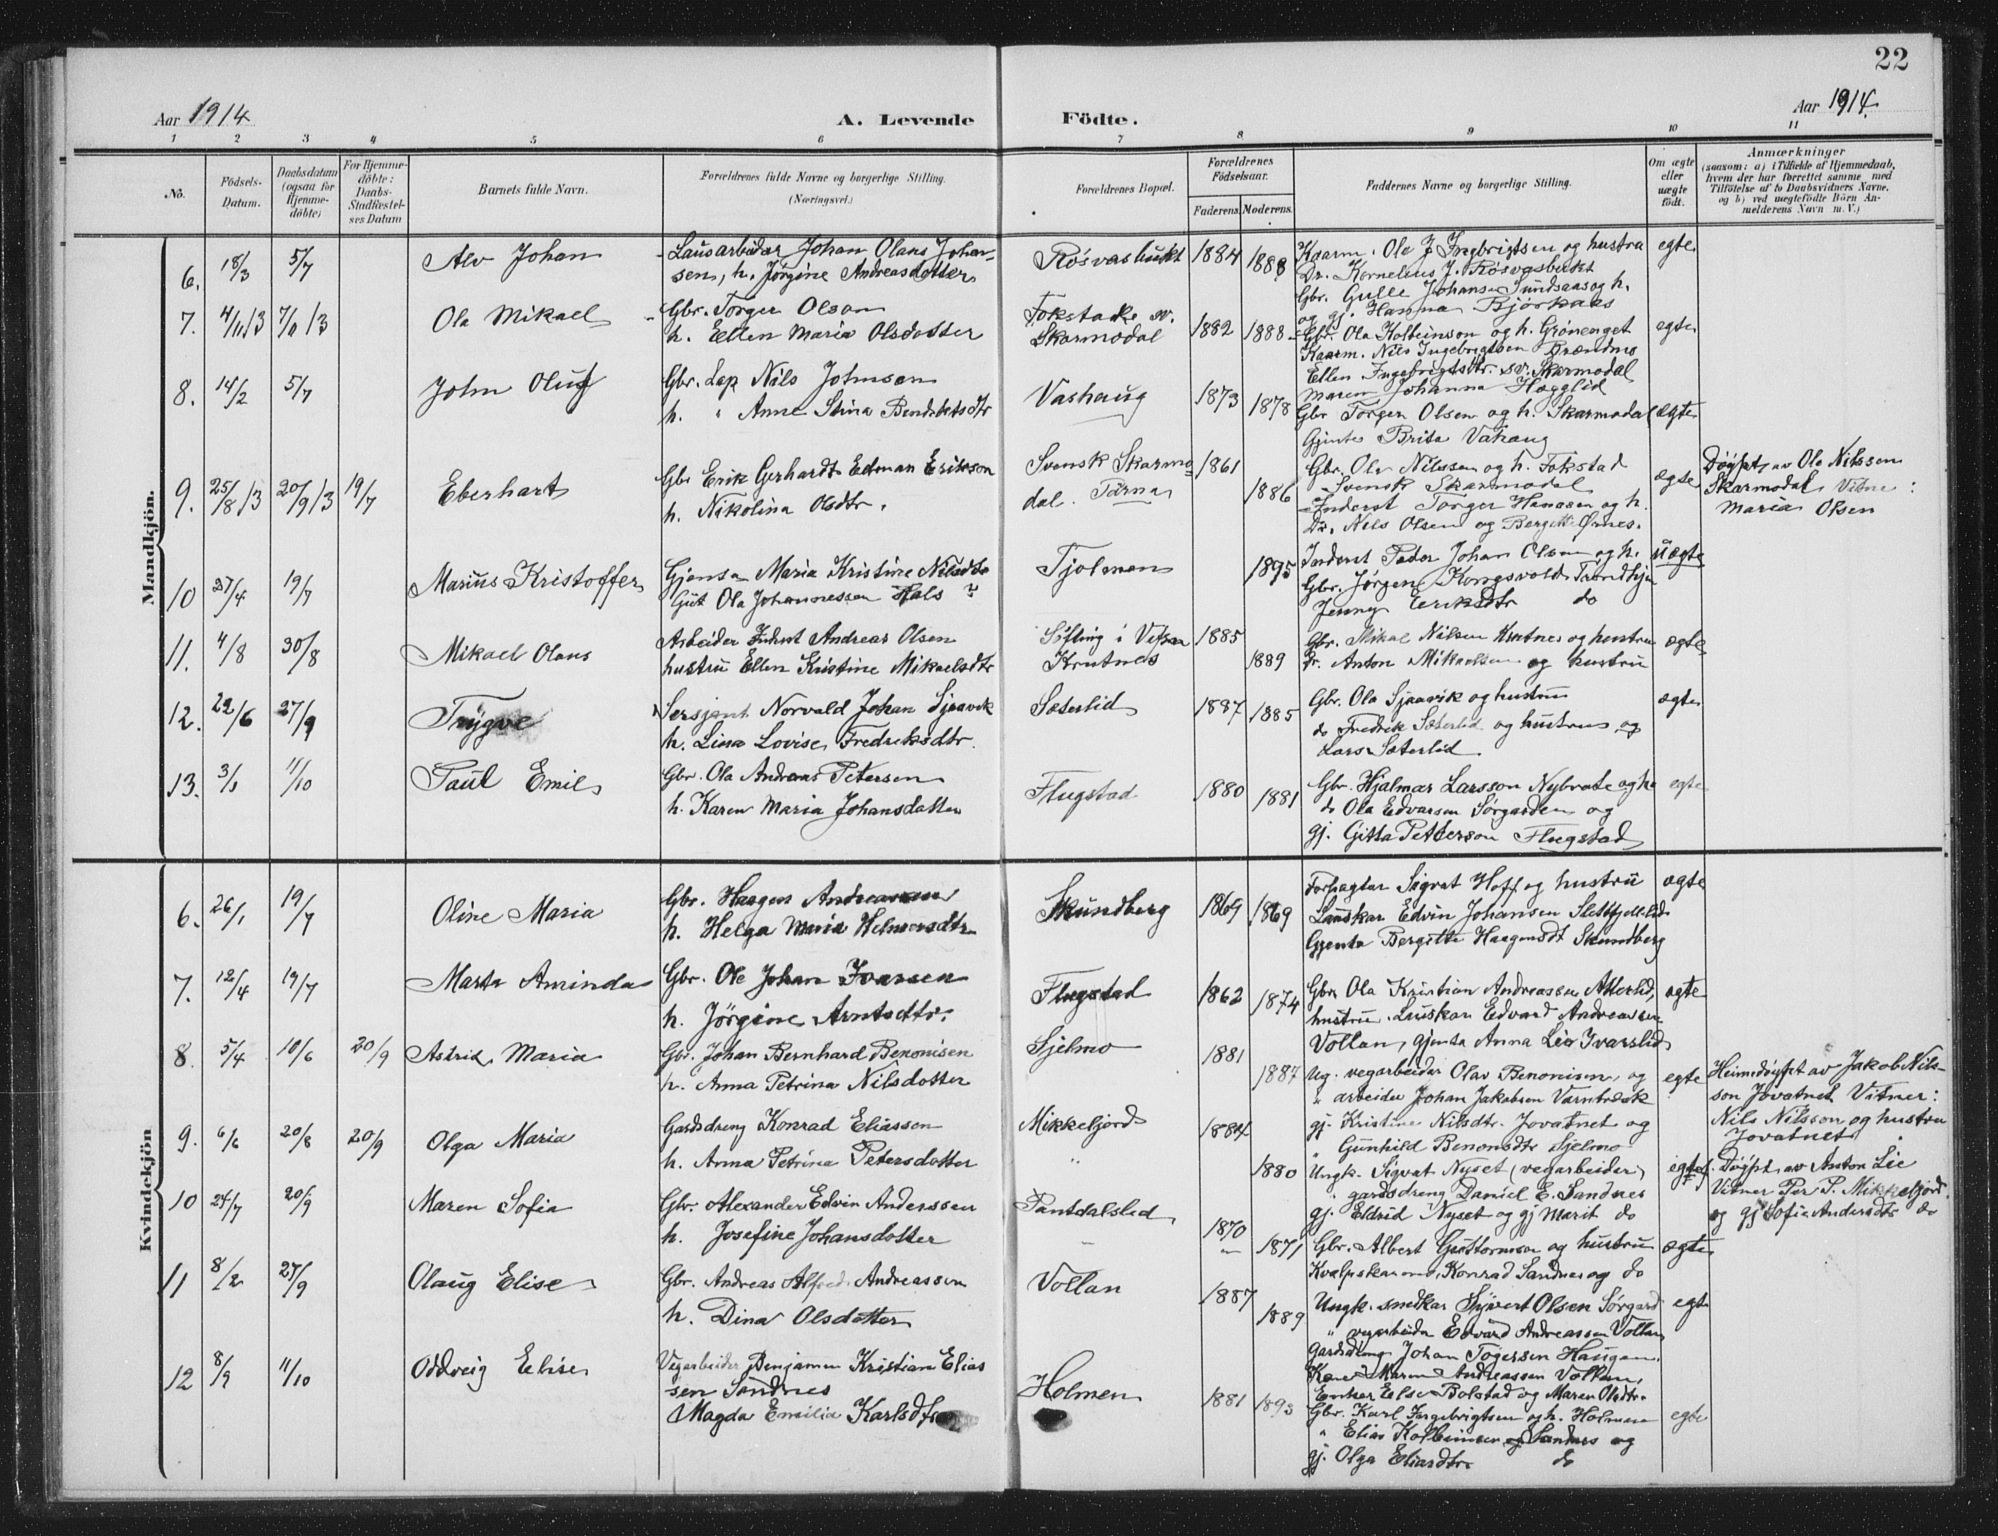 22
Aar 1914
A. Levende
Födte.
Aar 1914.
1 2 3 4 5 6 7 8 9 10 11
No.
Födsels-
Datum.
Daabsdatum
(ogsaa for
Hjemme-
döbte)
For Hjemme-
döbte:
Daabs-
Stadfæstel-
ses Datum
Barnets fulde Navn.
Forældrenes fulde Navne og borgerlige Stilling.
(Næringsvei.)
Forældrenes Bopæl.
Forældrenes
Födselsaar.
Faderens. Moderens.
Faddernes Navne og borgerlige Stilling.
Om ægte
eller
uægte
födt.
Anmærkninger
(saasom: a) i Tilfælde af Hjemmedaab,
hvem der har forrettet samme med
Tilföielse af to Daabsvidners Navne,
og b) ved uægtefödte Börn An-
melderens Navn m. V.)
Mandkjön.
6. 18/3 5/7 Alv Johan
Lausarbeider Johan Olaus Johan-
sen, h. Jørgine Andreasdotter
Røsvasbukt 1884 1888
Kaarm. Ole J Ingebrigtsen og hustru
Dr. Kornelius J. Røsvasbukt
Gbr. Gulle Johansen Sundsaas og h.
og gj. Hanna Bjørkaas
egte
7. 4/11 13 7/11 13 Ola Mikael
Gbr. Torger Olson
h. Ellen Maria Olsdotter
Tokstad sv.
Skarmodal
1882 1888
Gbr. Ola Kolbeinson og h. Grönenget
Kaarm. Nils Ingebrigtsen Brændmo
Ellen Ingebrigtsdtr. sv. Skarmodal
Maren Johanna Hægglid
egte
8. 14/2 5/7 John Oluf
Gbr. Lap Nils Johnsen
h. " Anne Stina Bendiktsdtr
Vashaug 1873 1878
Gbr Torger Olsen og h. Skarmodal
Gjente Brita Vashaug
ægte
9. 25/8 13 20/9 13 19/7 Eberhart
Gbr Erik Gerhardt Edman Erikson
h. Nikolina Olsdtr.
Svensk Skarmo
dal. Tärna
1861 1886
Gbr. Olv Nilssen og h. Tokstad
Svensk Skarmodal
Inderst Torger Hansen og h.
Dr. Nils Olsen og Bergitte Ørnes.
ægte
Døypt av Ola Nilssen
Skarmodal Vitne:
Maria Olsen
10 27/4 19/7 Marius Kristoffer
Gjenta Maria Kristine Nilsdtr
Gut Ola Johannessen Hals ?
Tjolmen 1895
Inderst Peder Johan Olsen og h.
Gbr. Jørgen Kongsvold Trondhjem
Jenny Eriksdtr do
uægte
11. 4/8 30/8 Mikael Olaus
Arbeider Inderst Andreas Olsen
hustru Ellen Kristine Mikaelsdtr
Söfting i Vefsn
Krutnes
1885 1889
Gbr. Mikal Nilsen Krutnes og hustru
Dr. Anton Mikaelsen og hustru
ægte
12. 22/6 27/9 Trygve
Sersjant Norvald Johan Sjaavik
h. Lina Lovise Fredriksdtr.
Sæterlid 1887 1885
Gbr. Ola Sjaavik og hustru
do Fredrik Sæterlid og hustru og
Lars Sæterlid
ægte
13. 3/1 11/10 Paul Emil
Gbr. Ola Andreas Petersen
h. Karen Maria Johansdatter
Flugstad 1880 1881
Gbr. Hjalmar Larsson Nybrate og h
do Ola Edvarsen Sørgarden og
gj. Gitta Petterson Flugstad
egte
Kvindekjön
6. 26/1 19/7 Oline Maria
Gbr. Haagen Andreassen
h. Helga Maria Helmersdtr
Skundberg 1869 1869
Forpagtar Sigvat Hoff og hustru
Lauskar Edvin Johansen Slettfjellid
Gjenta Bergitte Haagensdt Skundberg
ægte
7. 12/4 19/7 Marta Aminda
Gbr. Ole Johan Ivarsen
h. Jörgine Arntsdtr.
Flugstad 1862 1874
Gbr Ola Kristian Andreassen Atterlid,
hustru. Lauskar Edvard Andreassen
Vollan, gjenta Anna Lia Ivarslid
ægte
8. 5/4 10/6 20/9 Astrid Maria
Gbr. Johan Bernhard Benonisen
h. Anna Petrina Nilsdotter
Sjelmo 1881 1887
Ug. vegarbeider Olav Benonisen, og
" arbeider Johan Jakobsen Varntresk
gj. Kristine Nilsdtr. Jovatnet og
" Gunhild Benonsdtr Sjelmo
egte
Heimedøypt av Jakob Nils-
son Jovatnet Vitner:
Nils Nilsson og hustru
Jovatnet
9. 6/6 20/8 20/9 Olga Maria
Gardsdreng Konrad Eliassen
h. Anna Petrina Petersdotter
Mikkeljord
"
1884 1880
Ungk. Sigvat Nyset, vegarbeider,
" gardsdreng Daniel E. Sandnes
gj. Eldrid Nyset og gj Marit do
egte
Døypt av Anton Lie
Vitner Per P. Mikkeljord
og gj Sofie Andersdtr do
10 24/7 20/9 Maren Sofia
Gbr. Alexander Edvin Anderssen
h. Josefine Johansdotter
Pantdalslid 1870 1871
Gbr. Albert Guttormson og hustru
Kvalpskarmo, Konrad Sandnes og do
ægte
11 8/2 27/9 Olaug Elise
Gbr. Andreas Alfred Andreassen
h. Dina Olsdotter
Vollan 1887 1889
Ungk. snedkar Syvert Olsen Sørgard
" vegarbeider Edvard Andreassen Vollan
Gardsdreng Johan Togersen Haugen.
Kone Maren Andreassen Vollan,
Enker Else Bolstad og Maren Olsdtr.
egte
12 8/9 11/10 Oddveig Elise
Vegarbeider Benjamin Kristian Elias
sen Sandnes
Magda Emilia Karlsdtr
Holmen 1881 1893
Gbr. Karl Ingebrigtsen og h. Holmen
" Elias Kolbeinsen Sandnes og
gj. Olga Eliasdtr. do
egte